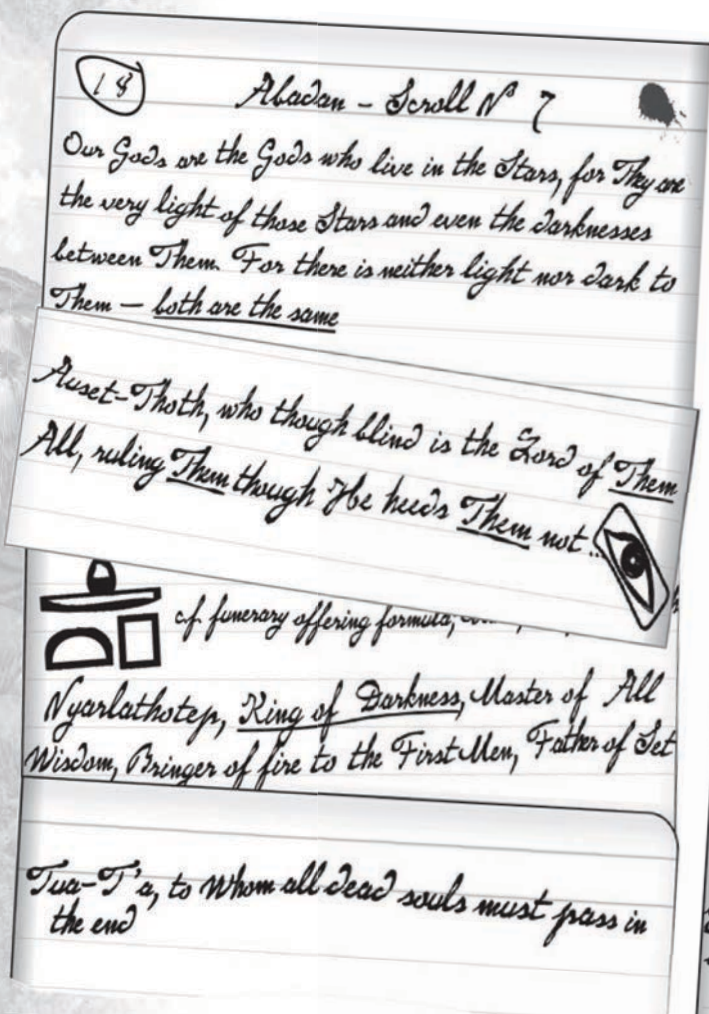 18
Abadan – Scroll Nº 7
Our Gods are the Gods who live in the Stars, for They are
the very light of those Stars and even the darknesses
between Them. For there is neither light nor dark to
Them – both are the same
Auset-Thoth, who though blind is the Lord of Them
All, ruling Them though He heeds Them not ...
c.f. funerary offering formula,
Nyarlathotep, King of Darkness, Master of All
Wisdom, Bringer of fire to the First Men, Father of Set
Tua-T'a, to whom all dead souls must pass in
the end